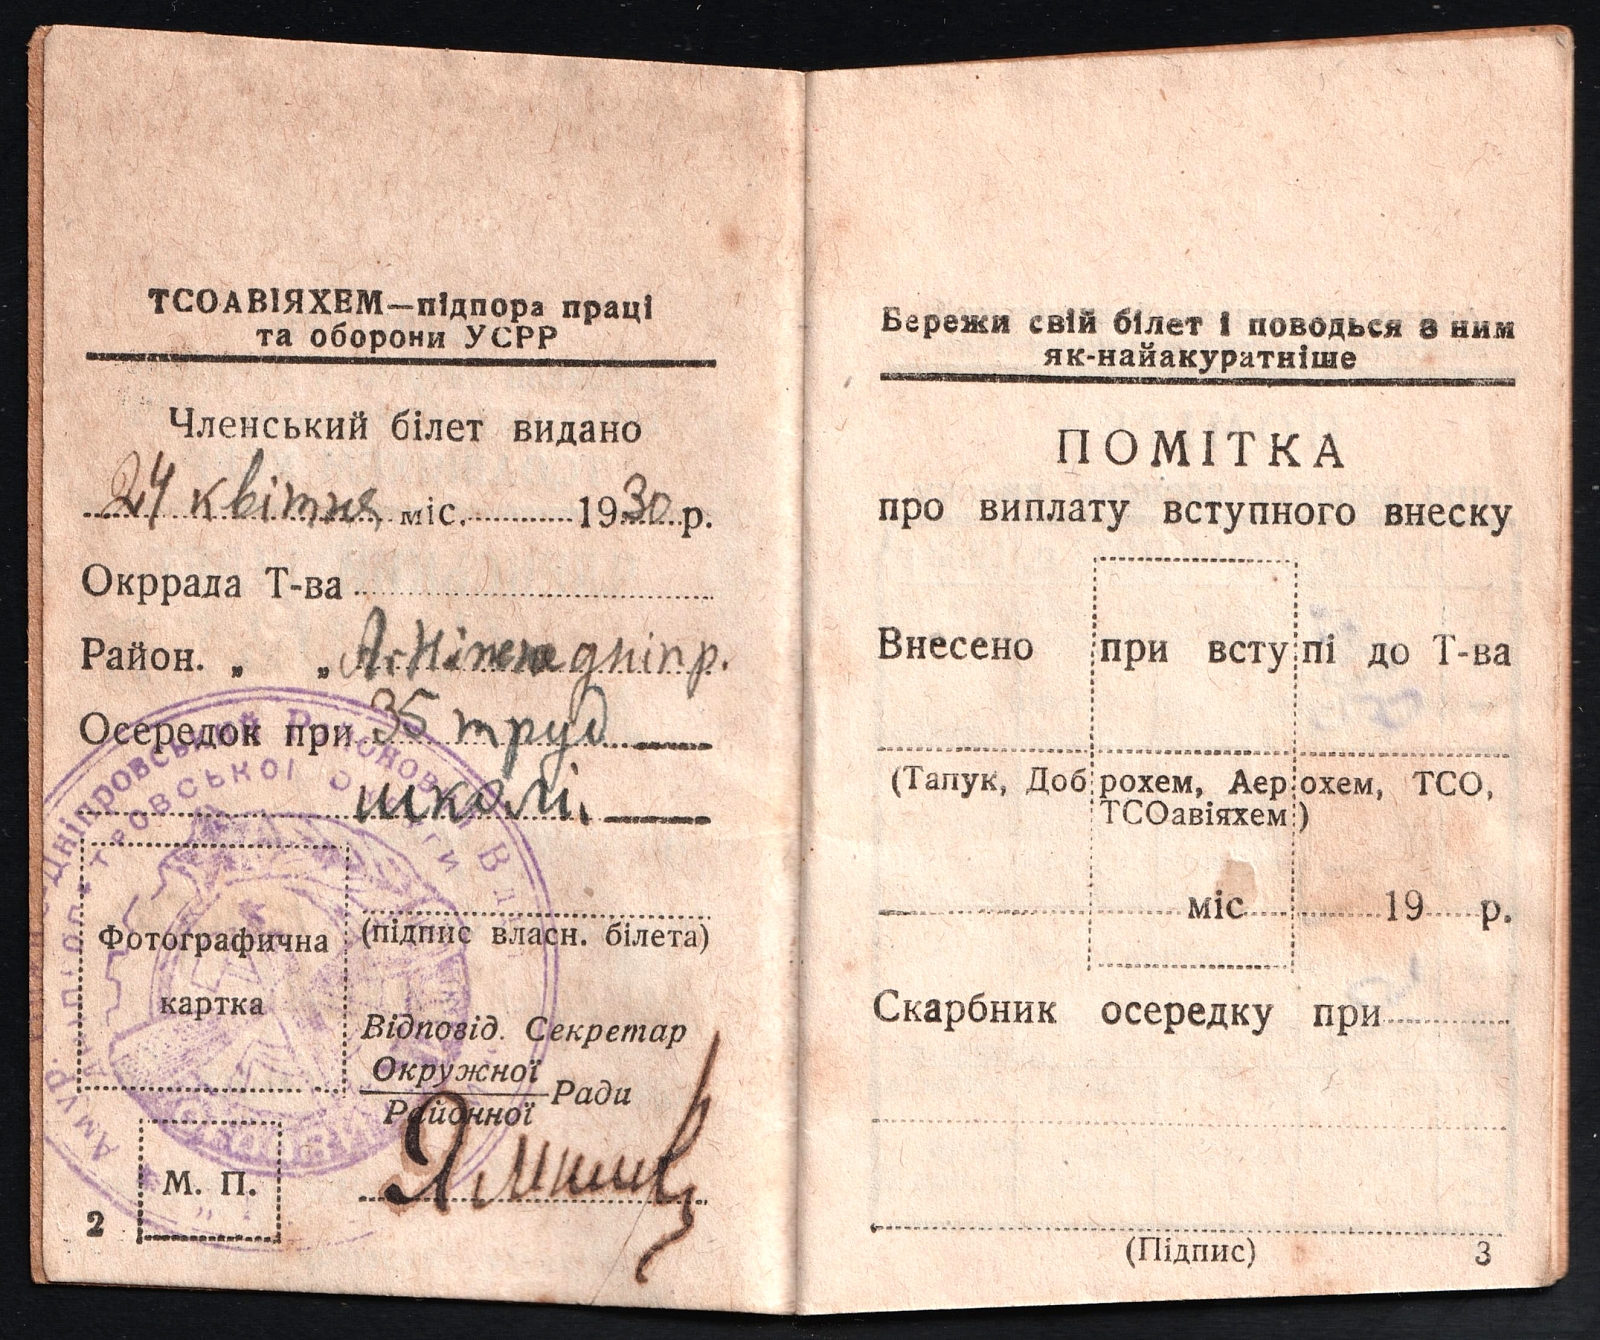 ТСОАВІЯХЕМ—підпора праці
та оборони УСРР
Членський білет видано
24 квітня міс. 1930 р.
Окррада Т-ва
Район. „ „ А-Ніжнедніпр.
Осередок при 35 труд
школі.
Фотографична
картка
(підпис власн. білета)
Відповід. Секретар
Окружної
Районної Ради
М. П.
2
Бережи свій білет і поводься з ним
як-найакуратніше
ПОМІТКА
про виплату вступного внеску
Внесено при вступі до Т-ва
(Тапук, Доброхем, Аерохем, ТСО,
ТСОавіяхем)
міс. 19 р.
Скарбник осередку при
(Підпис)
3